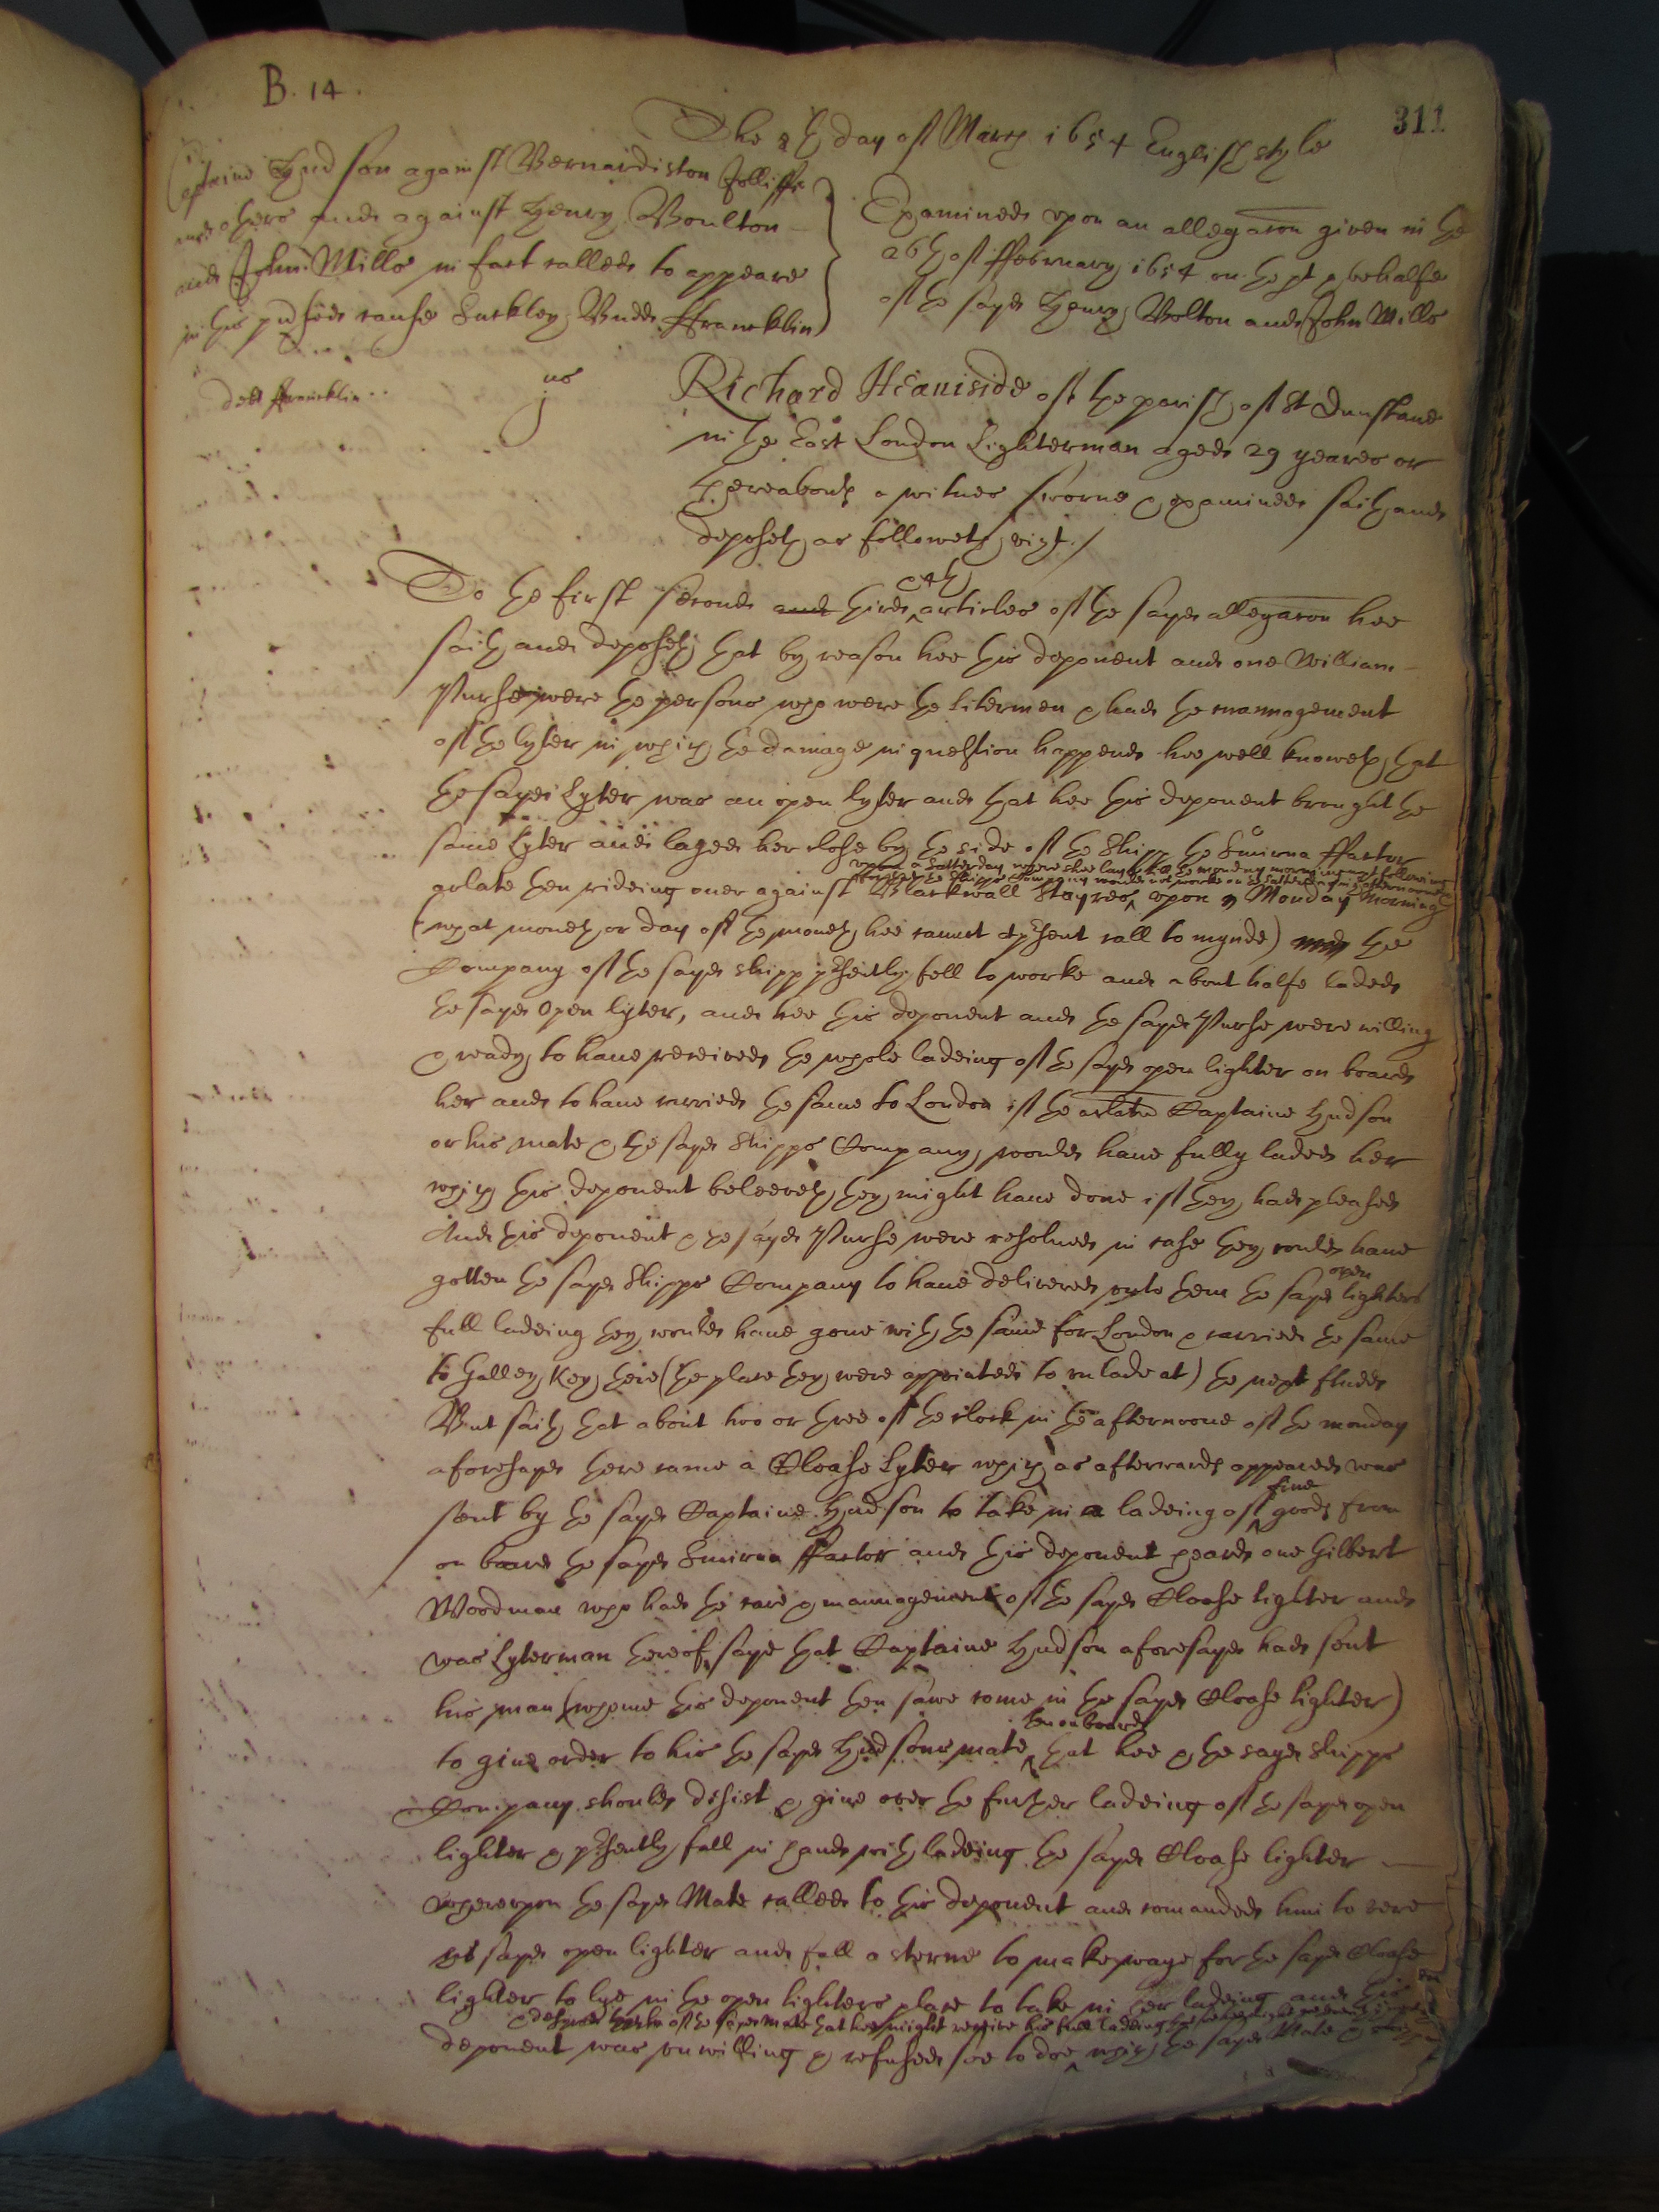 B. 14.
311
The 9th day of March 1654 English style
Captaine Hudson against Bernardiston Jolliffe
and others and against Henry Boulton
and John Mills in fact called to appeare
in this cause Suckley, Budd. ffrancklin
Examined upon an allegaton given in the
26th of ffebruary 1654 on the pt & behalfe
of the sayd Henry Bolton and John Mills
ffrancklin
jus
Richard Heaniside of the parish of St Dunstans
in the East London Lighterman aged 29 yeares or
thereabouts a witnes sworne & examined saith and
deposeth as followeth vizt./
To the first second and third & 4th articles of the sayd allegaton hee
saith and deposeth that by reason hee this deponent and one William
Purse were the persons who were the litermen & had the mannagement
of the lyter in which the damage in question happend hee well knoweth that
the sayd Lyter was an open lyter and that hee this deponent brought the
same Lyter and layed her close by the side of the Shipp the Smirna ffactor
upon a Satterday where shee lay till the monday morning next following
the Shipps Company would not worke on the Satterday in afternoone
arlate then rideing over against Blackwall Stayres upon Monday Morning
(what moneth or day of the moneth hee cannot at present call to mynde) the
Company of the sayd shipp presently fell to worke and about halfe laded
the sayd Open lyter, and hee this deponent and the sayd Purse were willing
& ready to have received the whole ladeing of the sayd open lighter on board
her and to have carried the same to London if the arlate Captaine Hudson
or his mate & the sayd Shipps Company would have fully laded her
which this deponent beleeveth they might have done if they had pleased
And this deponent & the sayd Purse were resolved in case they could have
gotten the sayd Shipps Company to have delivered unto them the sayd open lighters
full ladeing they would have gone with the same for London & carried the same
to Galley Key there (the place they were appointed to unlade at) the next fludd
But saith that about two or three of the clock in the afternoone of the monday
aforesayd there came a Cloase Lyter which as afterwards appeared was
sent by the sayd Captaine Hudson to take in a ladeing of fine goods from
on board the sayd Smirna ffactor and this deponent heard one Gilbert
Woodman who had the care & mannagement of the sayd Cloase lighter and
was Lyterman thereof, saye that Captaine Hudson aforesayd had sent
his man (whome this deponent then sawe come in the sayd Cloase lighter)
to give order to his the sayd Hudsons mate then on board that hee & the sayd Shipps
Company should desist & give over the further ladeing of the sayd open
lighter & presently fall in hand with ladeing the sayd Cloase lighter
whereupon the sayd Mate called to this deponent and comanded him to vere
sayd open lighter and fall a sterne to make waye for the sayd Cloase
lighter to lye in the open lighters place to take in her ladeing and this
& desired of the sayd mate that hee might receive his full ladeing
deponent was unwilling & refused soe to doe which the sayd Mate